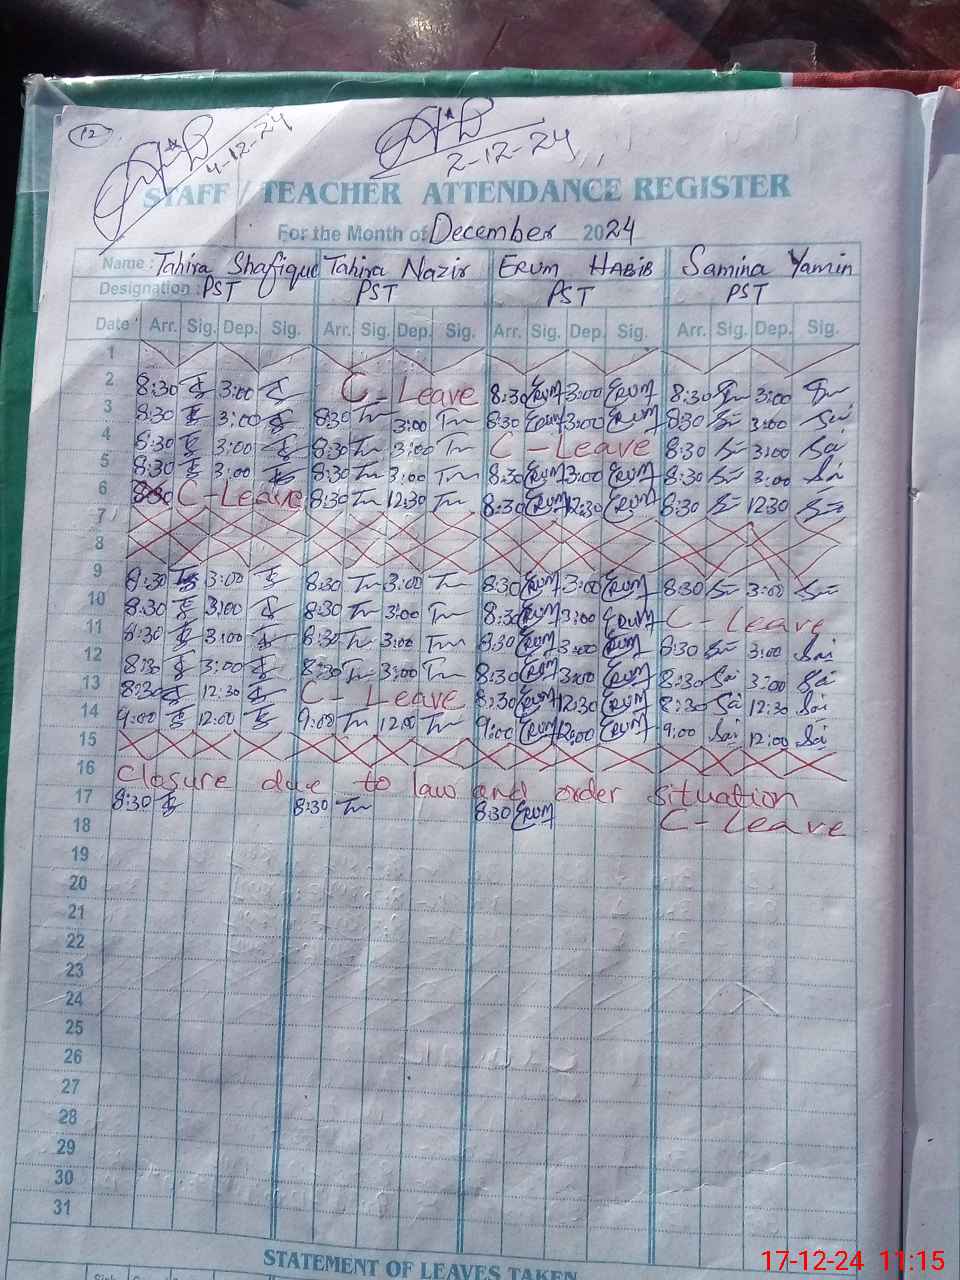 12
4-12-24
2-12-24
STAFF / TEACHER ATTENDANCE REGISTER
For the Month of December 2024
Name: Tahira Shafique Tahira Nazir ERUM HABIB Samina Yamin
Designation: PST PST PST PST
Date Arr. Sig. Dep. Sig. Arr. Sig. Dep. Sig. Arr. Sig. Dep. Sig. Arr. Sig. Dep. Sig.
1
2 8:30 3:00 C-Leave 8:30 Erum 3:00 Erum 8:30 3:00
3 8:30 3:00 8:30 Tn 3:00 Tn 8:30 Erum 3:00 Erum 8:30 3:00
4 8:30 3:00 8:30 Tn 3:00 Tn C-Leave 8:30 3:00
5 8:30 3:00 8:30 Tn 3:00 Tn 8:30 Erum 3:00 Erum 8:30 3:00
6 8:30 C-Leave 8:30 Tn 12:30 Tn 8:30 Erum 12:30 Erum 8:30 12:30
7
8
9 8:30 3:00 8:30 Tn 3:00 Tn 8:30 Erum 3:00 Erum 8:30 3:00
10 8:30 3:00 8:30 Tn 3:00 Tn 8:30 Erum 3:00 Erum C-Leave
11 8:30 3:00 8:30 Tn 3:00 Tn 8:30 Erum 3:00 Erum 8:30 3:00
12 8:30 3:00 8:30 Tn 3:00 Tn 8:30 Erum 3:00 Erum 8:30 3:00
13 8:30 12:30 C-Leave 8:30 Erum 12:30 Erum 8:30 12:30
14 9:00 12:00 9:00 Tn 12:00 Tn 9:00 Erum 12:00 Erum 9:00 12:00
15
16 Closure due to law and order situation
17 8:30 8:30 Tn 8:30 Erum C-Leave
18
19
20
21
22
23
24
25
26
27
28
29
30
31
STATEMENT OF LEAVES TAKEN
17-12-24 11:15